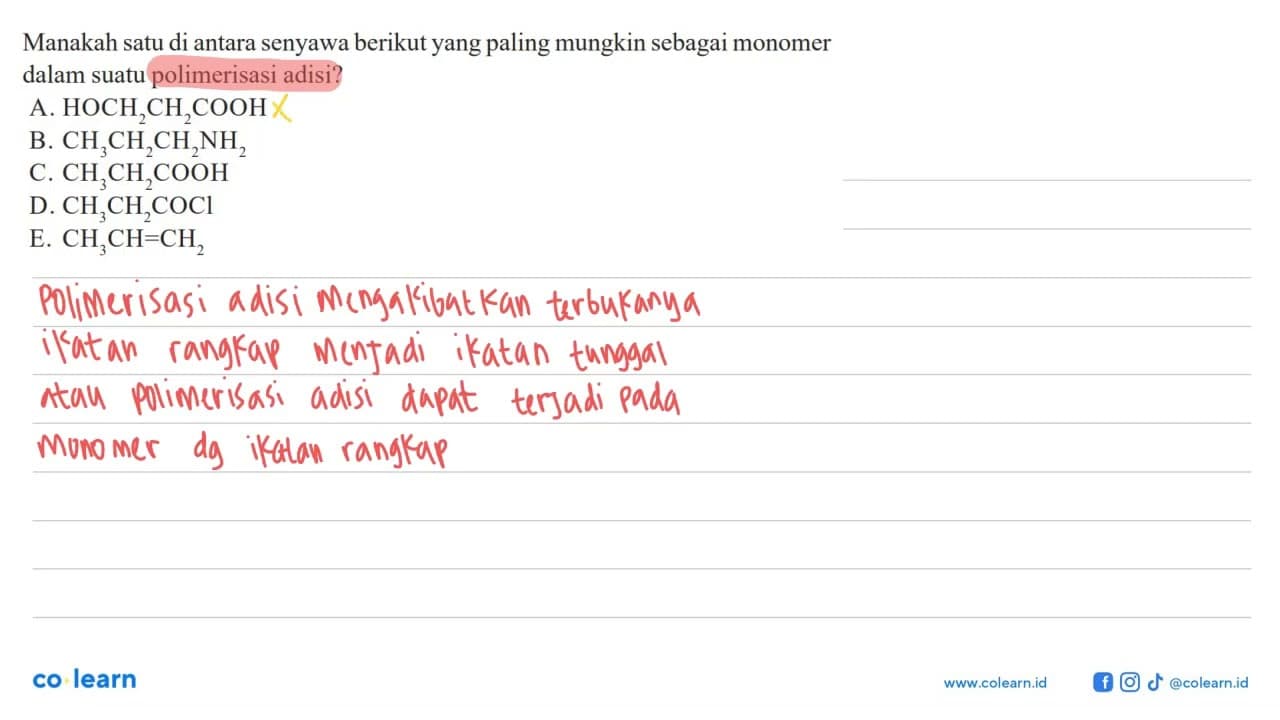 Manakah satu di antara senyawa berikut yang paling mungkin sebagai monomer
dalam suatu polimerisasi adisi?
A. HOCH₂CH₂COOH X
B. CH₃CH₂CH₂NH₂
C. CH₃CH₂COOH
D. CH₃CH₂COCl
E. CH₃CH=CH₂
Polimerisasi adisi mengakibatkan terbukanya
ikatan rangkap menjadi ikatan tunggal
atau polimerisasi adisi dapat terjadi pada
monomer dg ikatan rangkap
co learn
www.colearn.id
@colearn.id